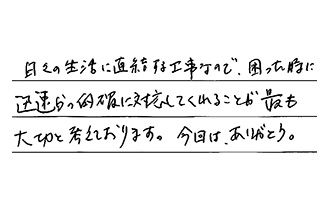 日々の生活に直結する工事なので、困った時に
迅速かつ的確に対応してくれることが最も
大切と考えております。今日は、ありがとう。